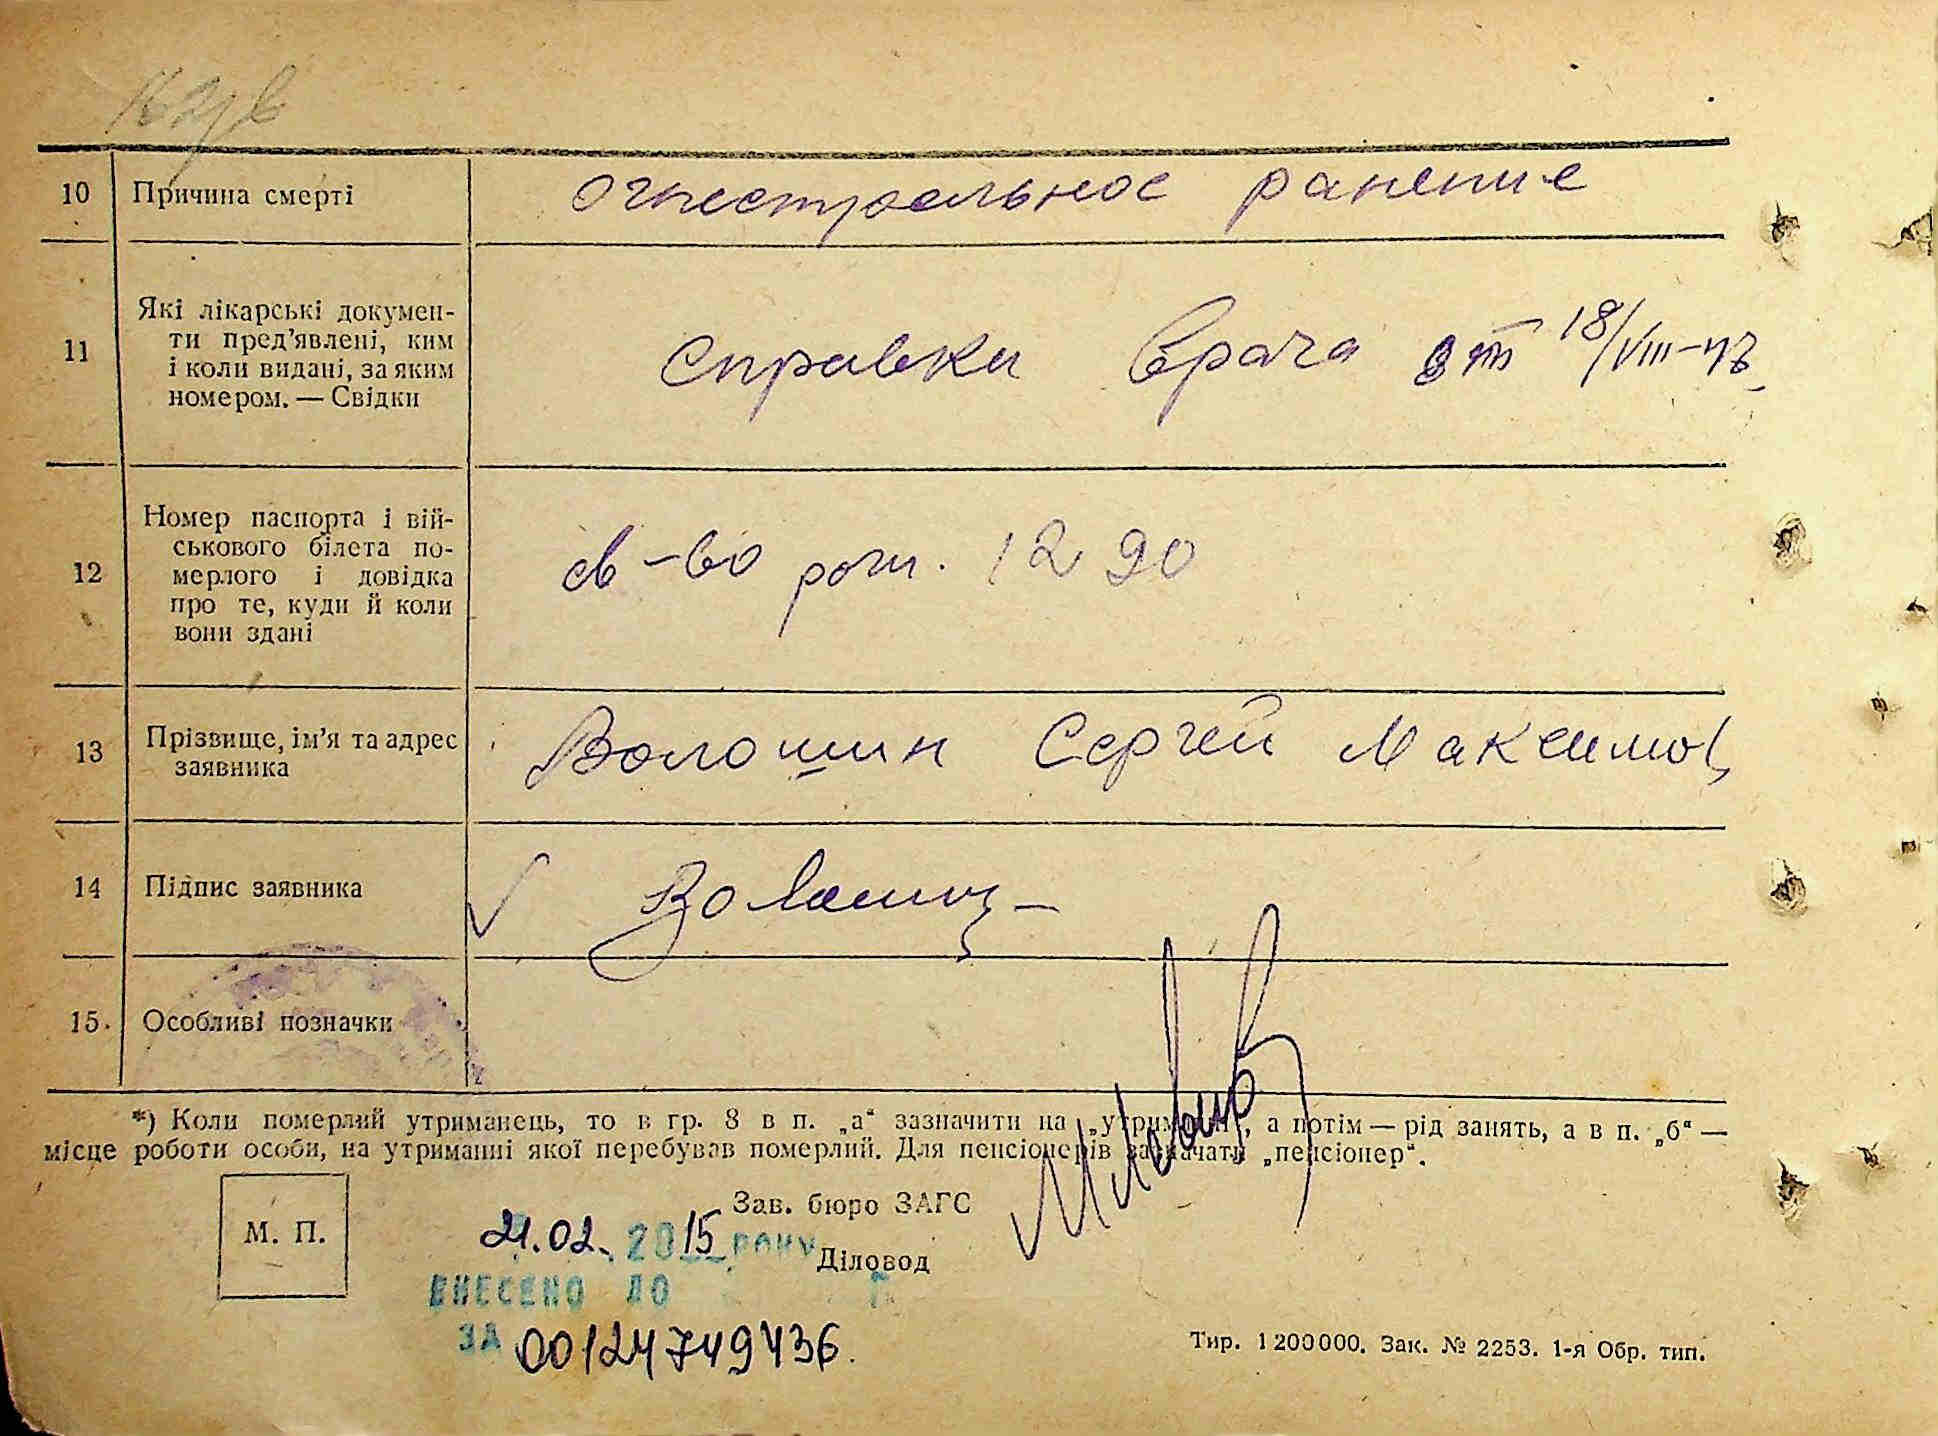 10 Причина смерті огнестрельное ранение
11 Які лікарські докумен-
ти пред'явлені, ким
і коли видані, за яким
номером. — Свідки
справки врача от 18/VIII-47
12 Номер паспорта і вій-
ськового білета по-
мерлого і довідка
про те, куди й коли
вони здані
св-во рож. 1290
13 Прізвище, ім'я та адрес
заявника
Волошин Сергей Максимов
14 Підпис заявника
15. Особливі позначки
*) Коли померлий утриманець, то в гр. 8 в п. „а“ зазначити на „утриманні“, а потім — рід занять, а в п. „б“ —
місце роботи особи, на утриманні якої перебував померлий. Для пенсіонерів зазначати „пенсіонер“.
М. П.
Зав. бюро ЗАГС
21.02. 2015 РОКУ
Діловод
ВНЕСЕНО ДО
ЗА 00124749436.
Тир. 1200000. Зак. № 2253. 1-я Обр. тип.